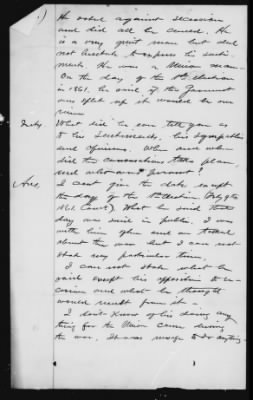 He voted against secession
and did all he could. He
is a very quiet man but did
not hesitate to express his senti-
ments. He was a Union man.
On the day of the election
in 1861, he said if the Government
was split up it would be our
ruin
What did he ever tell you as
to his sentiments, his sympathies
and opinions. When and where
did the conversations take place,
and who was present?
Ans. I cant give the date except
the day of the election
What he said that
day was said in public. I was
with him often and we talked
about the war but I can not
state any particular time.
I can not state what he
said except his opposition to se-
cession and what he thought
would result from it -
I don't know of his doing any
thing for the Union cause during
the war. It was unsafe to do anything